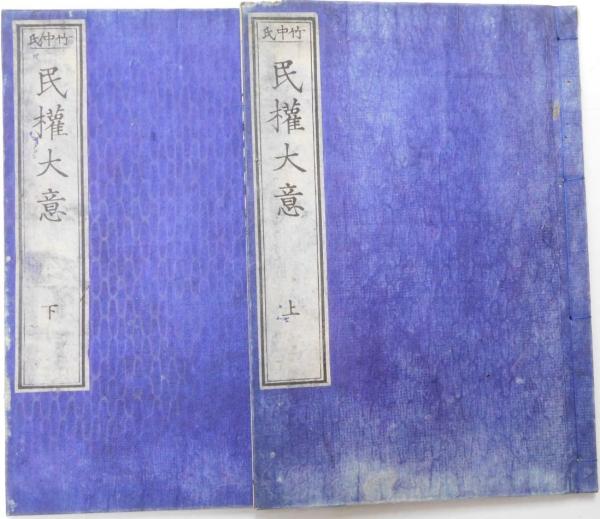 竹中氏
民權大意
上
竹中氏
民權大意
下